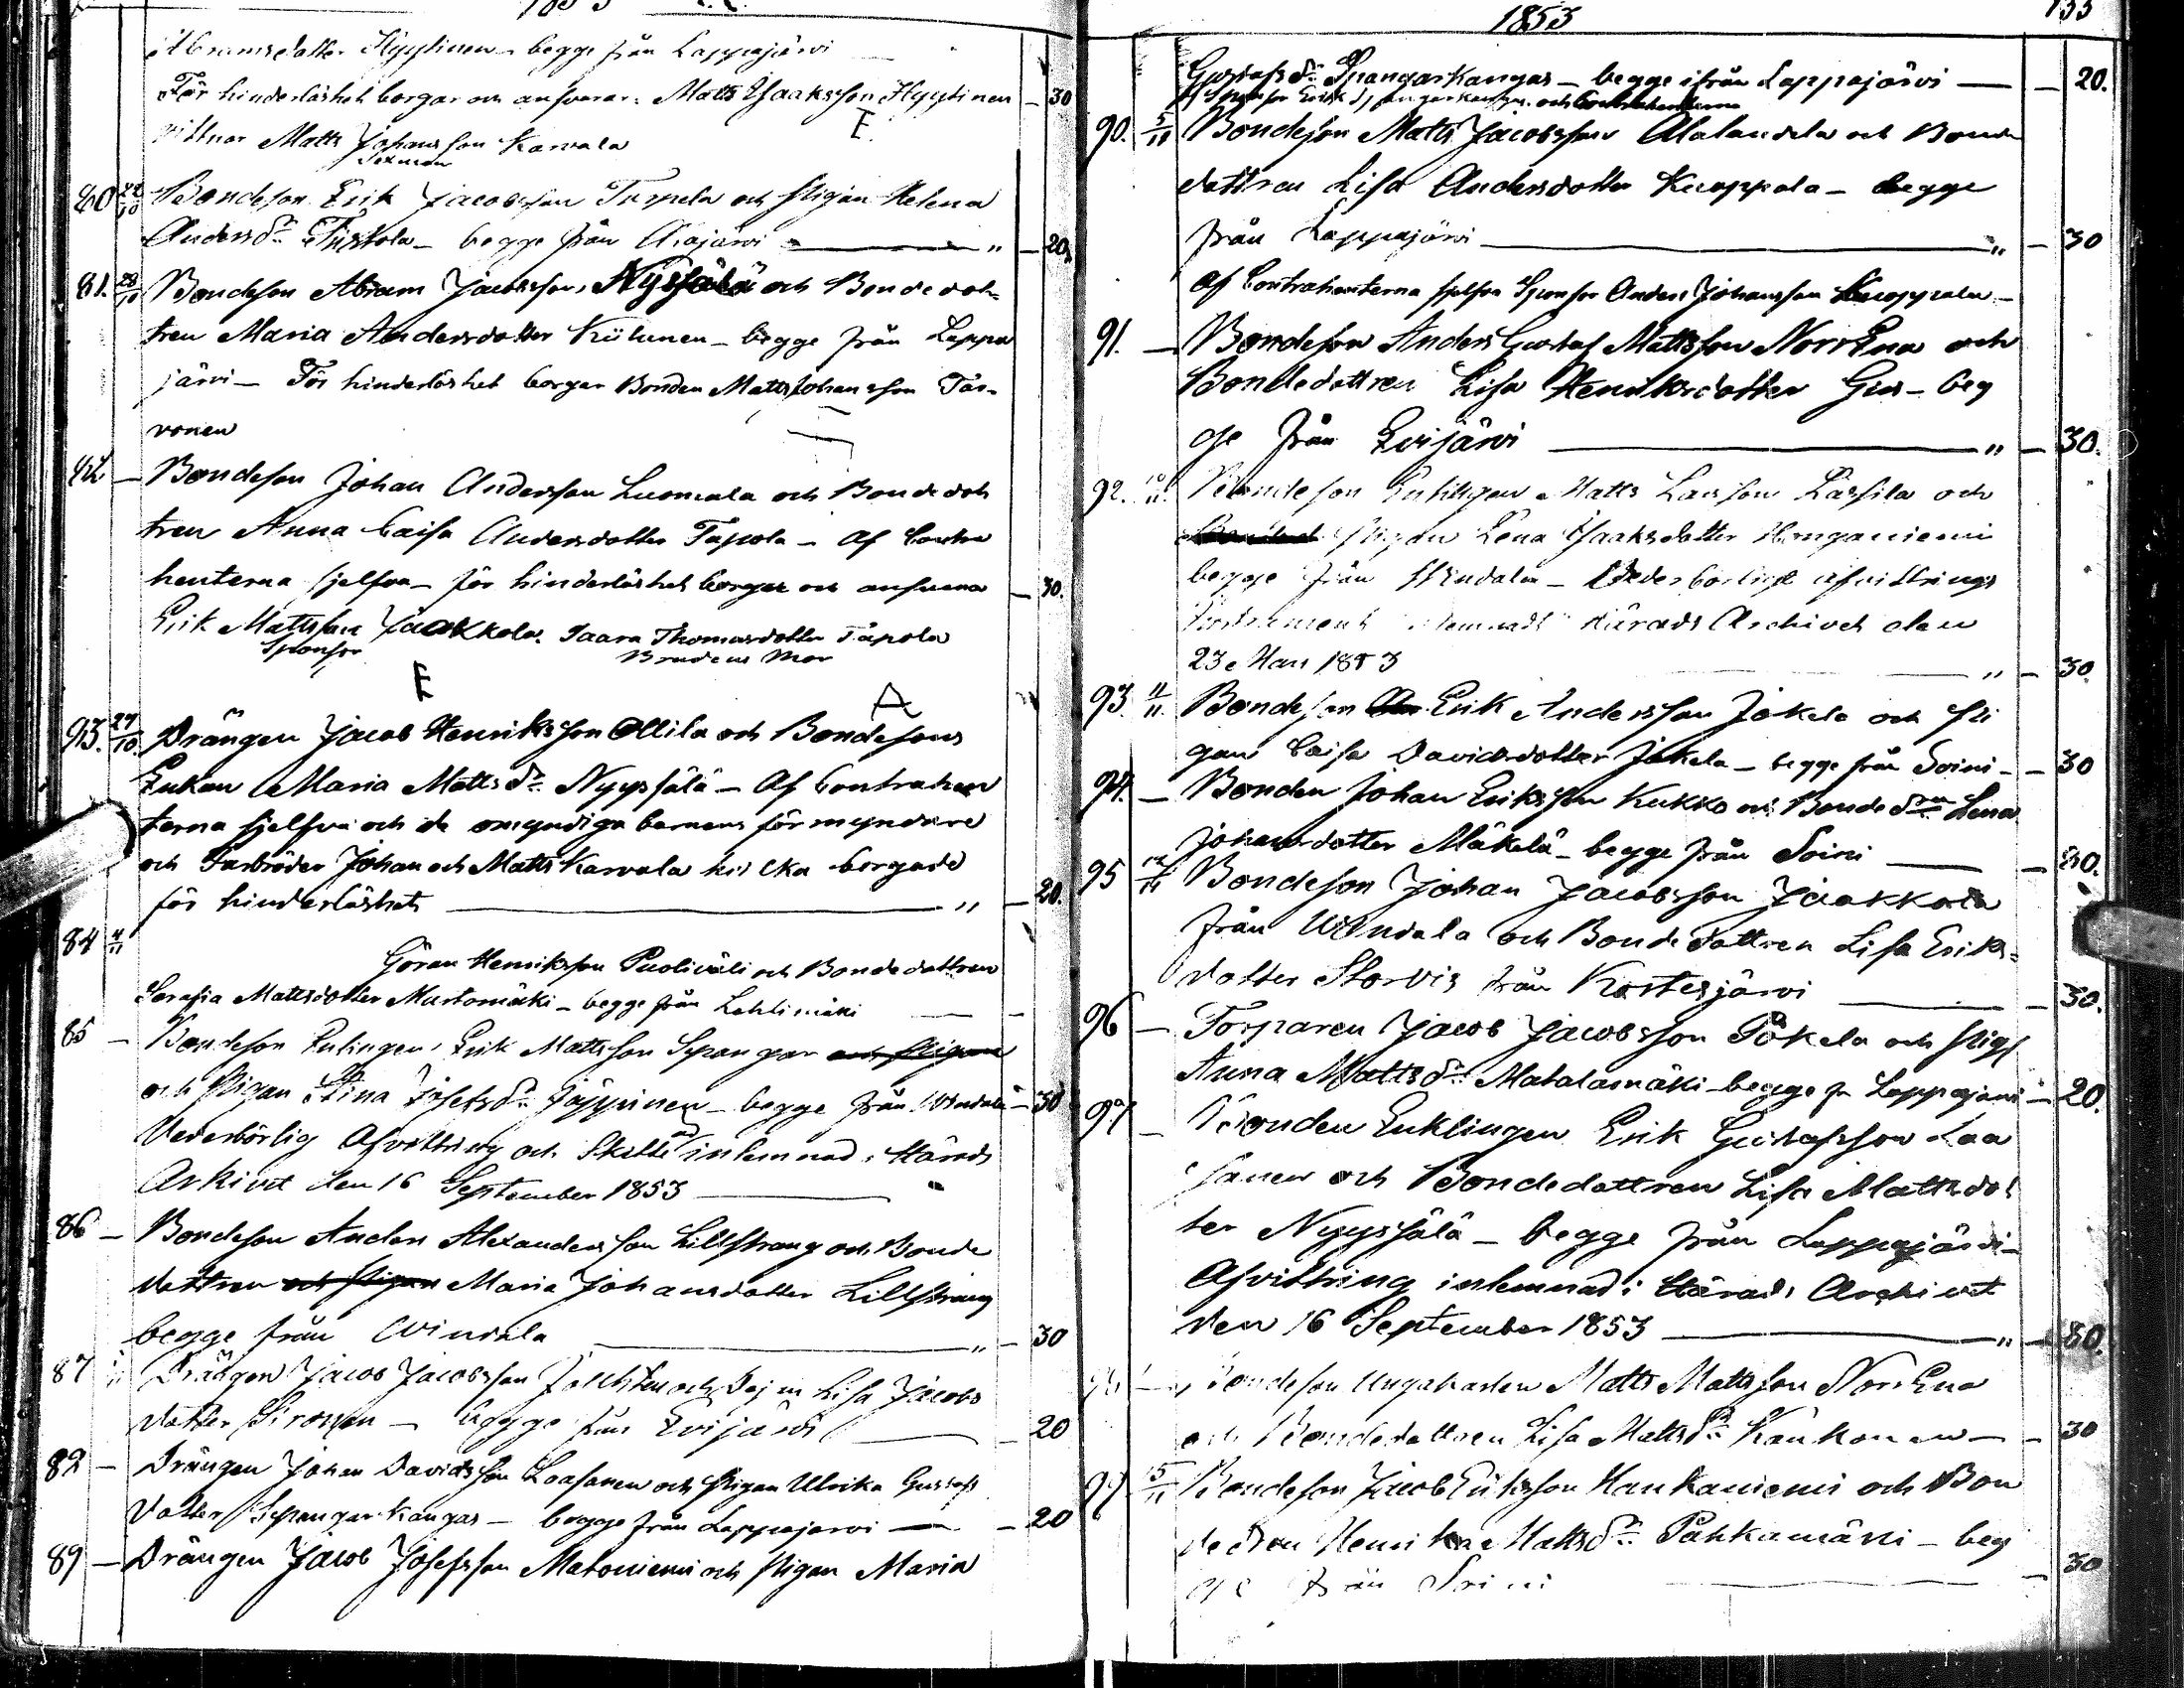 1853
Abramsdotter Hyytinen - begge från Lappajärvi
För hinderlöshet borgar och ansvarar: Matts Isaaksson Hyytinen - 30
vittnar Matts Johansson Karvala
Sexman
80 22/10 Bondeson Erik Jacobsson Turpela och Pigan Helena
Anders dr. Tuskola - begge från Alajärvi " - 20
81. 23/10 Bondeson Abram Jacobsson Nyysälä och Bondedot-
tren Maria Andersdotter Kiilunen - begge från Lappa
järvi - För hinderlöshet borgar Bonden Matts Johansson Tar-
vonen
82 - Bondeson Johan Andersson Luomala och Bondedot
tren Anna Caisa Andersdotter Tapola - Af Contra
henterna sjelfva - för hinderlöshet borgar och ansvara - 30.
Erik Mattsson Jaakkola. Saara Thomasdotter Tapola
Sponsor Brudens Mor
E A
93. 27/10. Drängen Jacob Henriksson Ollila och Bondesons
Enkan Maria Matts dr. Nyyssälä - Af Contrahen
terna sjelfva och de omyndiga barnens förmyndare
och Farbröder Johan och Matts Karvala hvilka borgade
för hinderlöshet " - 20.
84 4/11
Göran Henriksson Puoliväli och Bondedottren
Serafia Mattsdotter Murtomäki - begge från Lehtimäki
85 - Bondeson Enklingen Erik Mattsson Spangar och Pigan
och Pigan Stina Josefs dr. Jäppinen - begge från Windala - 30
Vederbörlig Afvittring och Skilte inlemnad i Härads
Arkivet den 16 September 1853
86 - Bondeson Anders Alexandersson Lillstrang och Bonde
dottren och Pigan Maria Johansdotter Lillstrang
begge från Windala " - 30
87 Drängen Jacob Jacobsson och Lisa Jacobs
dotter Sironen - begge från Evijärvi - 20
82 - Drängen Johan Davidsson Laasanen och Pigan Ulrika Gustafs
dotter Spangarkangas - begge från Lappajärvi - 20
89 - Drängen Jacob Josefsson Matoniemi och Pigan Maria
1853
133
Gustafs dr. Spangarkangas - begge ifrån Lappajärvi - 20.
Af Sponsor Erik Spangarkangas och Contrahenterna
90. 5/11 Bondeson Matts Jacobsson Alalandela och Bonde
dottren Lisa Andersdotter Kuoppala - begge
från Lappajärvi " - 30
Af Contrahenterna sjelfva Sponsor Anders Johansson Kuoppala -
91. - Bondeson Anders Gustaf Mattsson NorrEna och
Bondedottren Lisa Henriksdotter Gus - beg
ge från Evijärvi " - 30.
92. 10/11. Bondeson Enklingen Matts Larsson Lassila och
Pigan Lena Isaksdotter Honganiemi
begge från Windala - Vederbörligt afvittrings
Instrument inlemnadt i Härads Archivet den
23 Mars 1853 " - 30
93. 11/11 Bondeson Erik Andersson Jokela och Pi
gan Caisa Davidsdotter Jokela - begge från Soini - - 30
94. - Bonden Johan Eriksson Kukko och Bonde dn. Lena
Johansdotter Mäkelä - begge från Soini - 30.
95 12/11 Bondeson Johan Jacobsson Jaakkola
från Windala och Bondedottren Lisa Eriks-
dotter Storvis från Kortesjärvi - 30.
96 - Torparen Jacob Jacobsson Pökela och Pig
Anna Matts dr. Matalamäki - begge fr Lappajärvi - 20.
97 - Bonden Enklingen Erik Gustafsson Laa
sanen och Bondedottren Lisa Mattsdot
ter Nyyssälä - begge från Lappajärvi -
Afvittring inlemnad i Härads Archivet
den 16 September 1853 " - 30.
98. - Bondeson Ungakarlen Matts Mattsson NorrEna
och Bondedottren Lisa Matts dr. Känkonen - - 30
99 15/11 Bondeson Jacob Eriksson Hankaniemi och Bon
dedtren Henrika Matts dr. Pahkamäki - beg
ge från Soini - 30